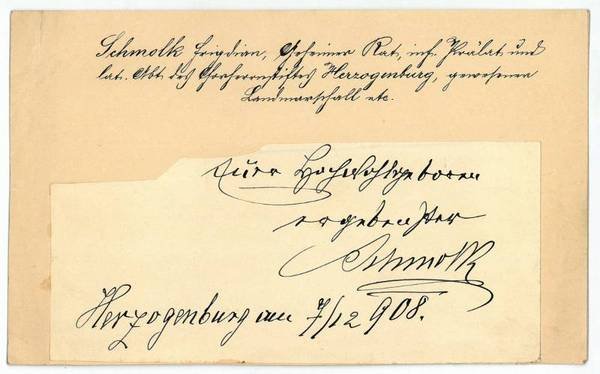 Schmolk Frigdian, Geheimer Rat, inf. Prälat und
lat. Abt des Chorherrnstiftes Herzogenburg, gewesener
Landmarschall etc.
Euer Hochwohlgeboren
ergebenster
Schmolk
Herzogenburg am 7/12 908.